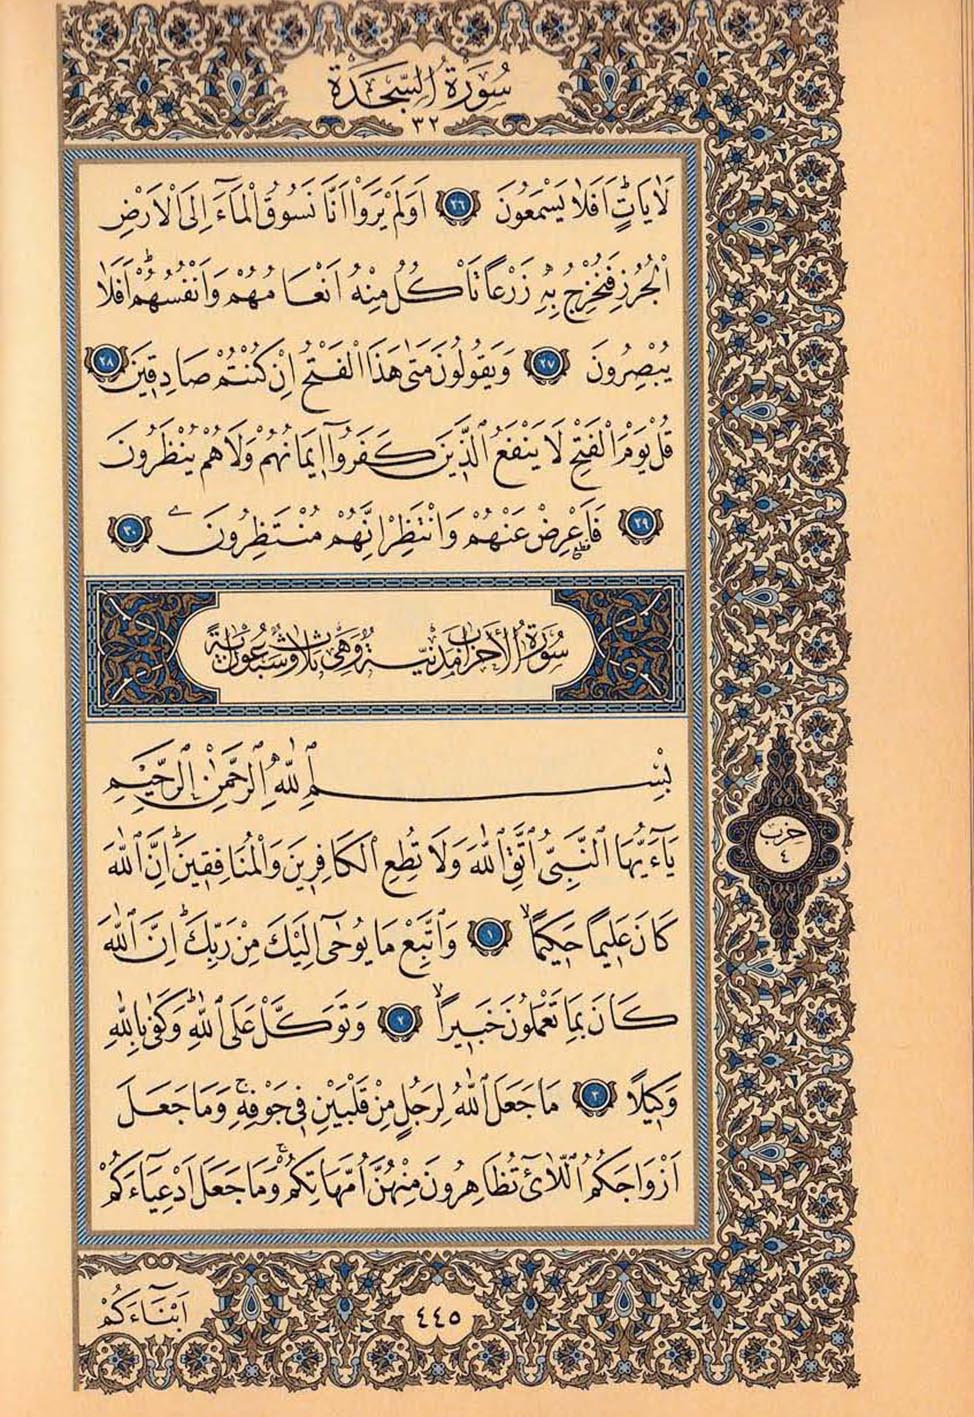 سُورَةُ السَّجْدَةِ
٣٢
لَاٰيَاتٍۜ اَفَلَا يَسْمَعُونَ ٢٦ اَوَلَمْ يَرَوْا اَنَّا نَسُوقُ الْمَٓاءَ اِلَى الْاَرْضِ
الْجُرُزِ فَنُخْرِجُ بِهٖ زَرْعاً تَأْكُلُ مِنْهُ اَنْعَامُهُمْ وَاَنْفُسُهُمْۜ اَفَلَا
يُبْصِرُونَ ٢٧ وَيَقُولُونَ مَتٰى هٰذَا الْفَتْحُ اِنْ كُنْتُمْ صَادِقٖينَ ٢٨
قُلْ يَوْمَ الْفَتْحِ لَا يَنْفَعُ الَّذٖينَ كَفَرُٓوا اٖيمَانُهُمْ وَلَا هُمْ يُنْظَرُونَ
٢٩ فَاَعْرِضْ عَنْهُمْ وَانْتَظِرْ اِنَّهُمْ مُنْتَظِرُونَ ٣٠
سُورَةُ الْأَحْزَابِ مَدَنِيَّةٌ وَهِيَ ثَلَاثٌ وَسَبْعُونَ اٰيَةً
بِسْمِ اللّٰهِ الرَّحْمٰنِ الرَّحٖيمِ
يَٓا اَيُّهَا النَّبِيُّ اتَّقِ اللّٰهَ وَلَا تُطِعِ الْكَافِرٖينَ وَالْمُنَافِقٖينَۜ اِنَّ اللّٰهَ
كَانَ عَلٖيماً حَكٖيماًۙ ١ وَاتَّبِعْ مَا يُوحٰٓى اِلَيْكَ مِنْ رَبِّكَۜ اِنَّ اللّٰهَ
كَانَ بِمَا تَعْمَلُونَ خَبٖيراًۙ ٢ وَتَوَكَّلْ عَلَى اللّٰهِۜ وَكَفٰى بِاللّٰهِ
وَكٖيلاً ٣ مَا جَعَلَ اللّٰهُ لِرَجُلٍ مِنْ قَلْبَيْنِ فٖي جَوْفِهٖۚ وَمَا جَعَلَ
اَزْوَاجَكُمُ الّٰٓـٖٔي تُظَاهِرُونَ مِنْهُنَّ اُمَّهَاتِكُمْۚ وَمَا جَعَلَ اَدْعِيَٓاءَكُمْ
حزب
٤
اَبْنَٓاءَكُمْ
٤٤٥